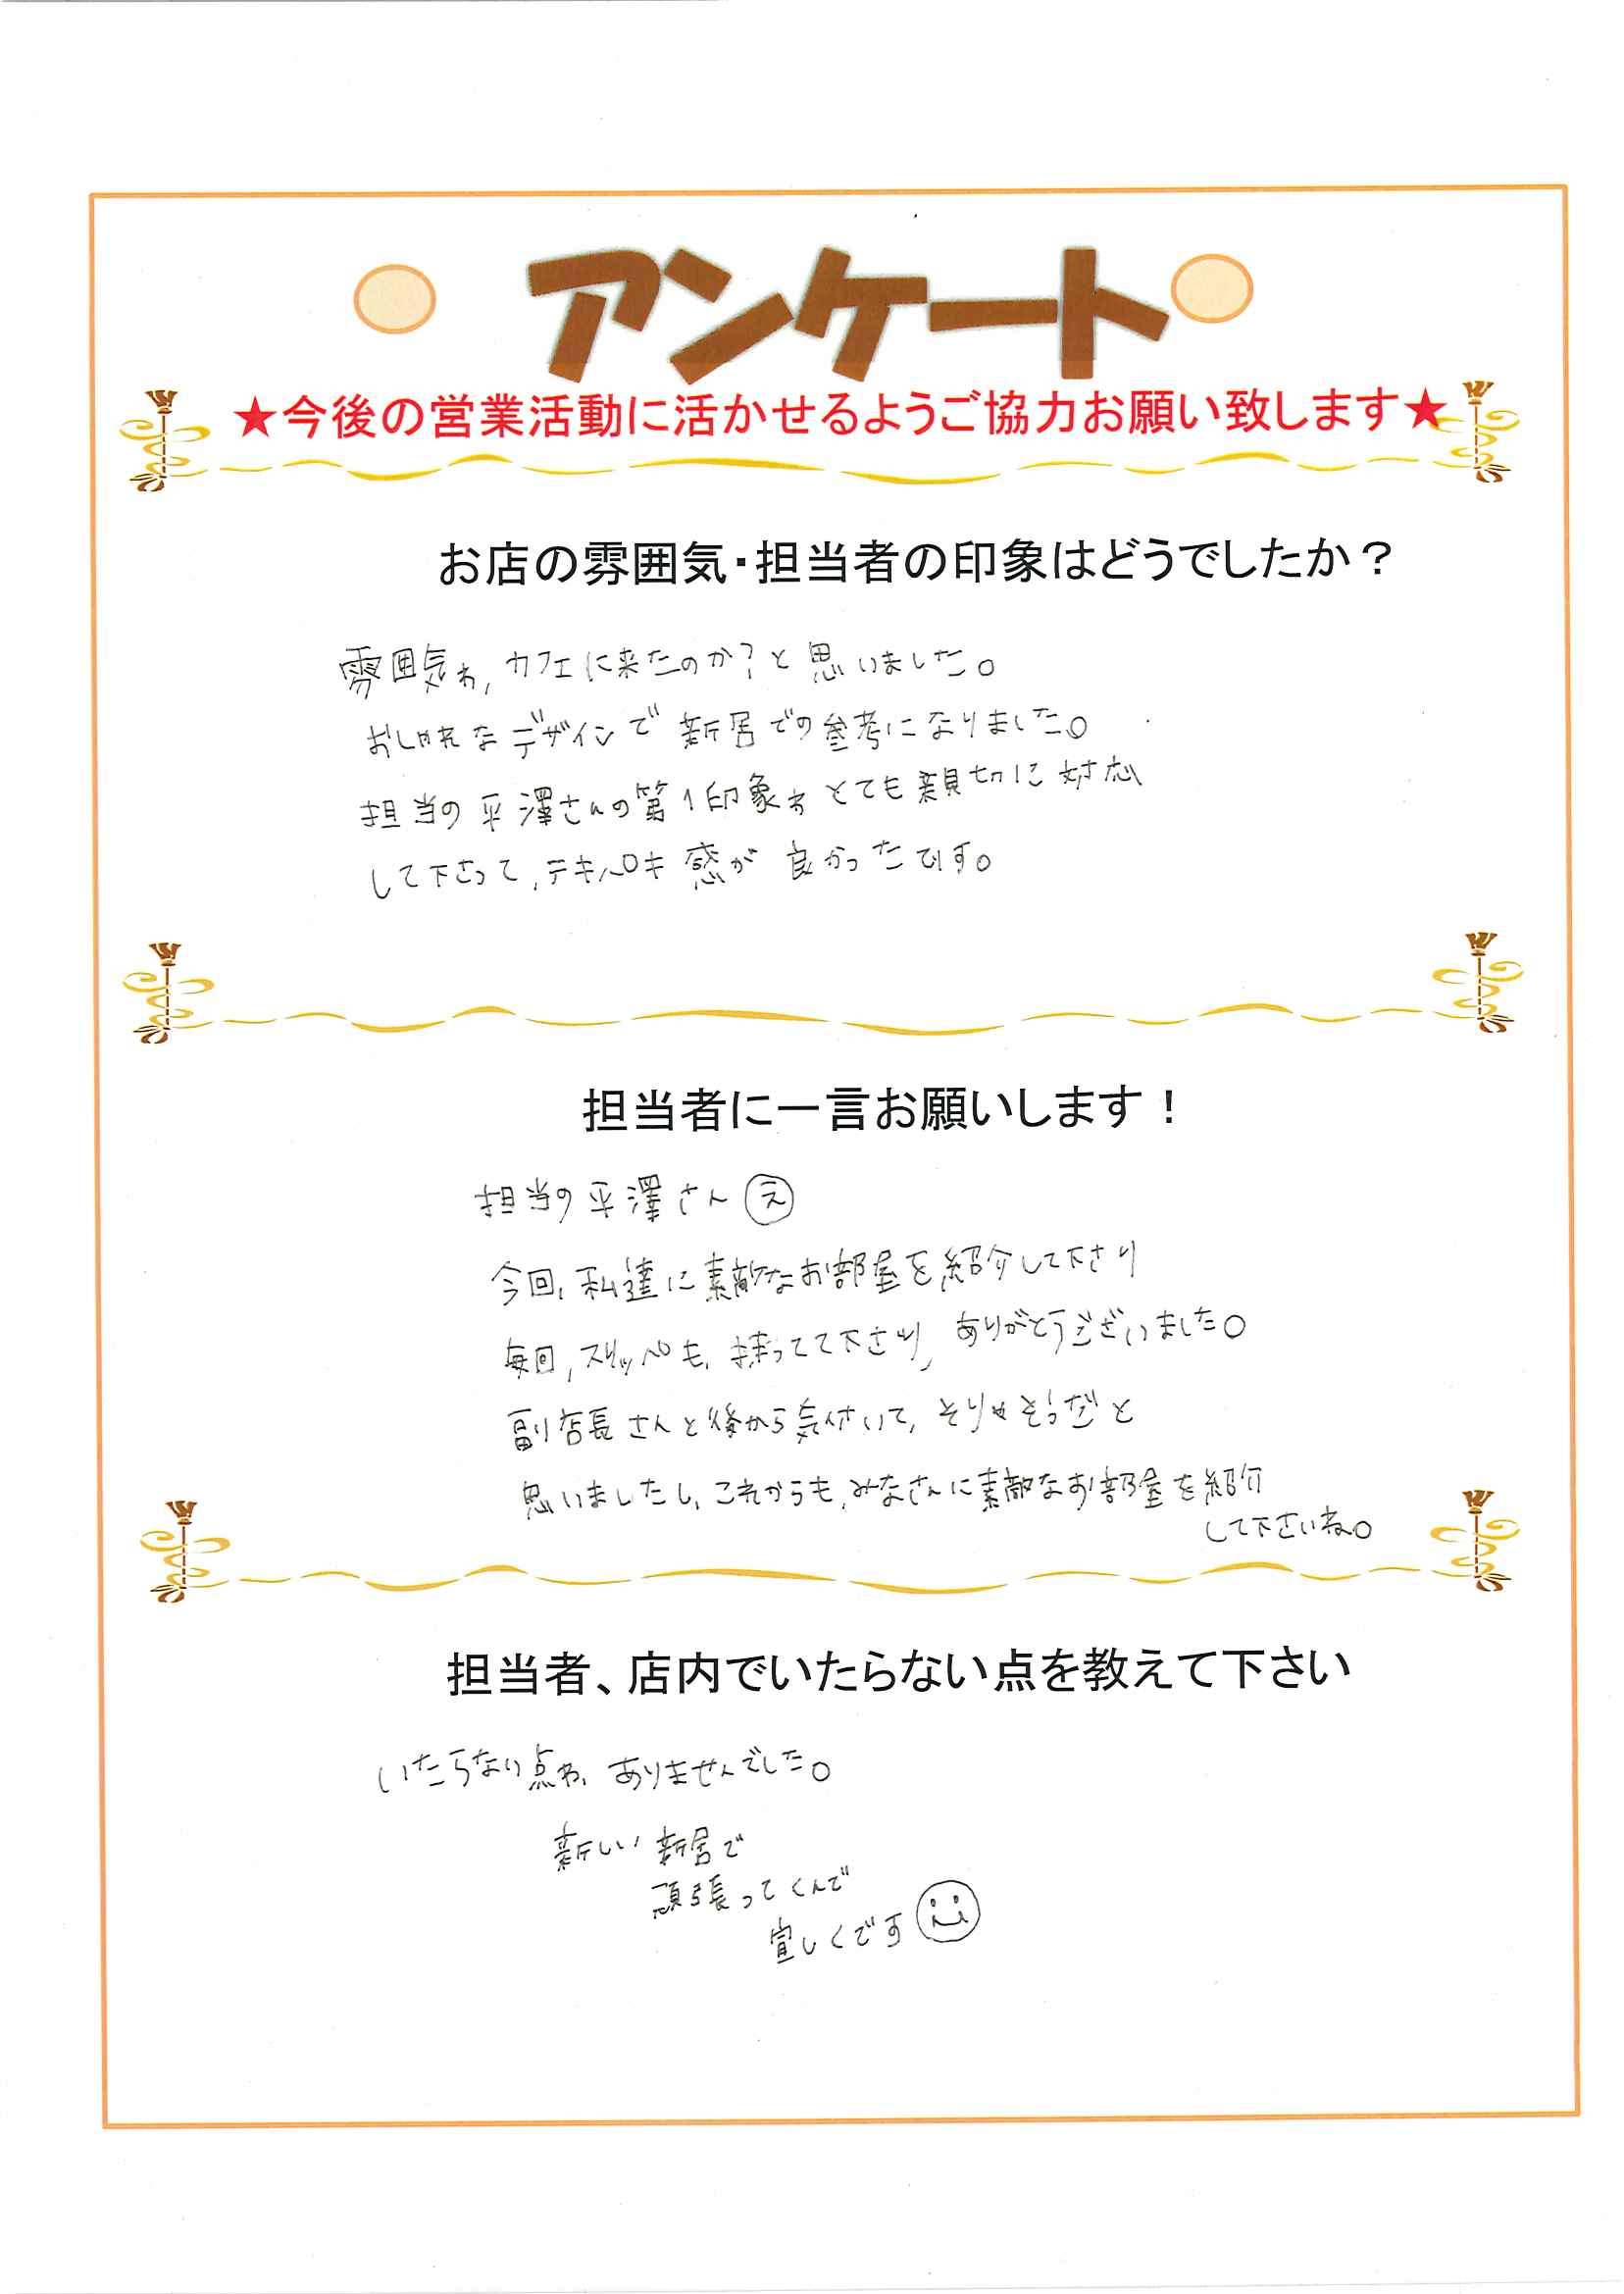 アンケート
★今後の営業活動に活かせるようご協力お願い致します★
お店の雰囲気・担当者の印象はどうでしたか？
雰囲気わ、カフェに来たのか？と思いました。
おしゃれなデザインで新居での参考になりました。
担当の平澤さんの第1印象わとても親切に対応
して下さって、テキパキ感が良かったです。
担当者に一言お願いします！
担当の平澤さんえ
今回、私達に素敵なお部屋を紹介して下さり
毎回、スリッパも、持ってて下さり、ありがとうございました。
副店長さんと後から気付いて、そりゃそうだと
思いましたし、これからも、みなさんに素敵なお部屋を紹介
して下さいね。
担当者、店内でいたらない点を教えて下さい
いたらない点わ、ありませんでした。
新しい新居で
頑張ってくんで
宜しくです